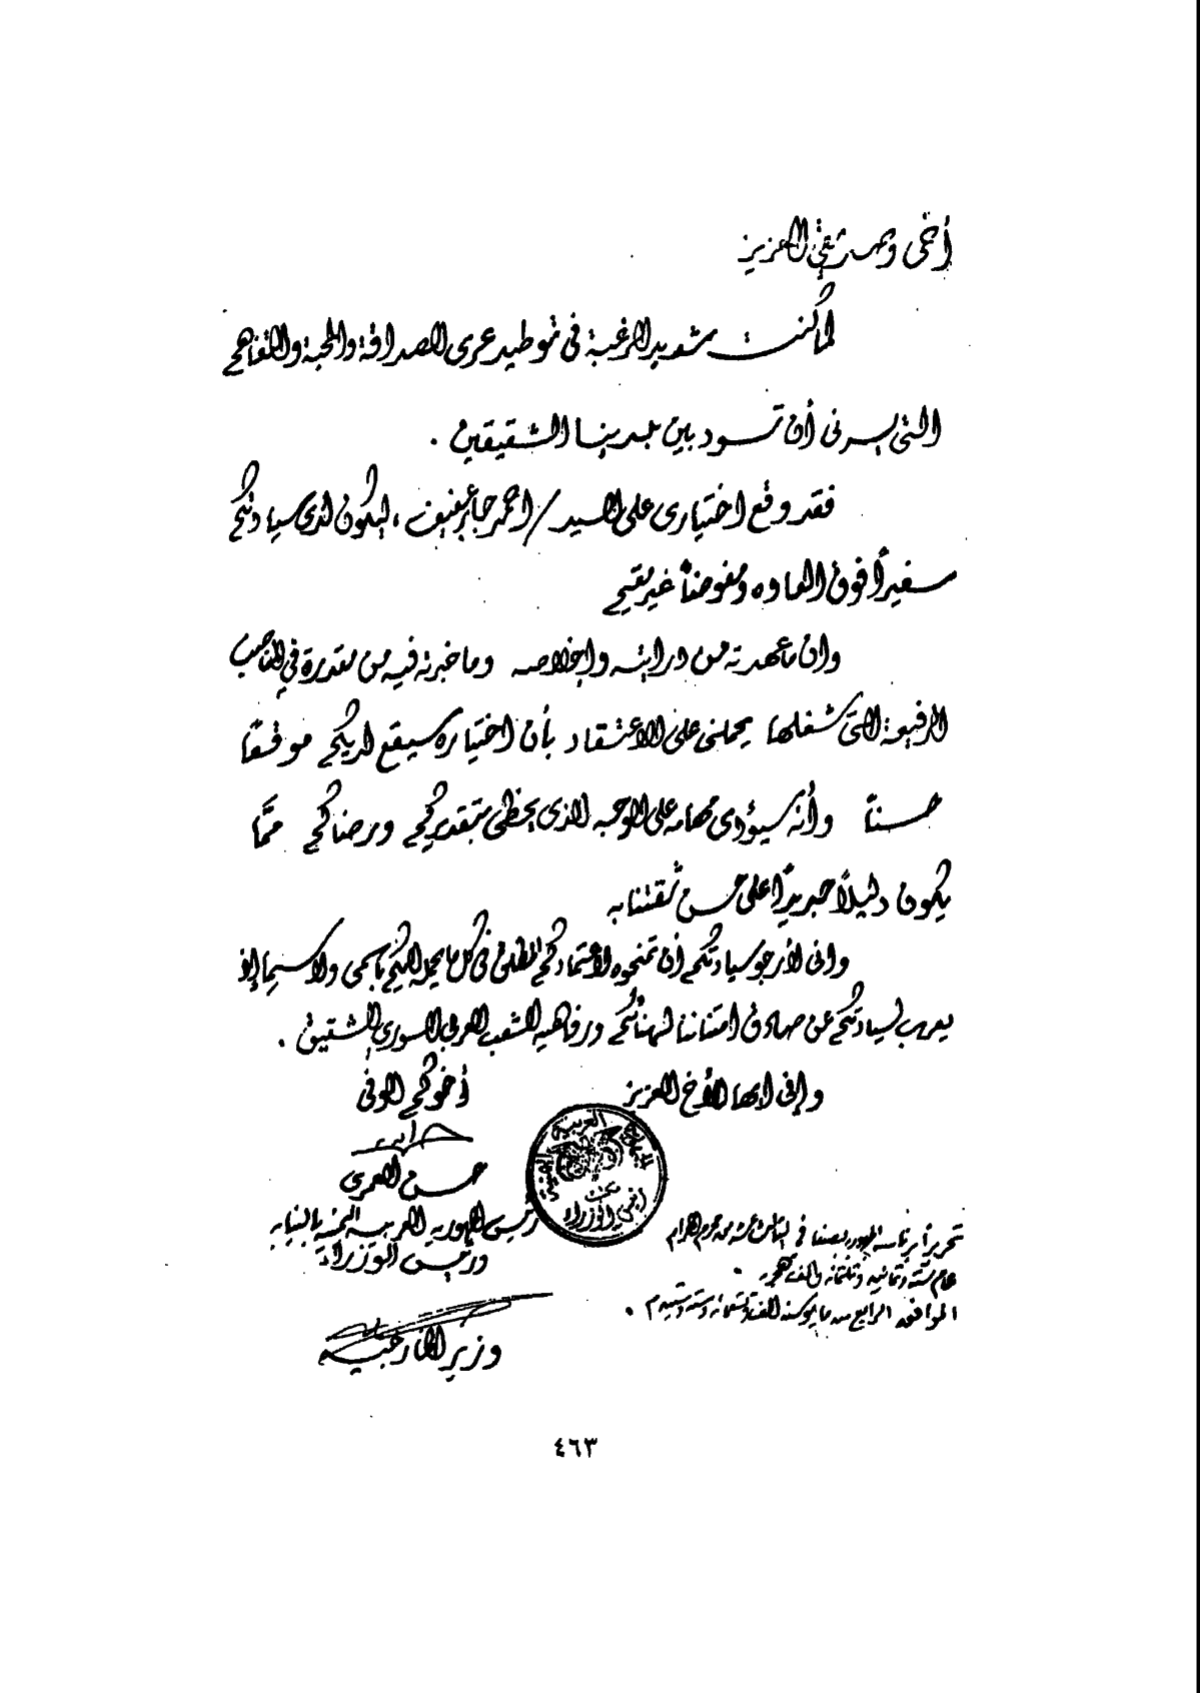 أخى وصديقى العزيز
لما كنت شديد الرغبة فى توطيد عرى الصداقة والمحبة والتفاهم
التى يسرنى أن تسود بين بلدينا الشقيقين .
فقد وقع اختيارى على السيد / احمد جابر عفيف ، ليكون لدى سيادتكم
سفيراً فوق العاده ومفوضاً غير مقيم
وان ما عهدته من درايته وإخلاصه وما خبرته فيه من مقدرة في المناصب
الرفيعة التى شغلها يحملنى على الاعتقاد بأن اختياره سيقع لديكم موقعاً
حسناً وأنه سيؤدى مهامه على الوجه الذى يحظى بتقديركم ورضاكم ممَّا
يكون دليلاً جديداً على حسن ثقتنا به
وانى لأرجو سيادتكم أن تمنحوه اعتمادكم المطلق فى كل ما يحمله اليكم باسمى ولاسيما إذ
يعرب لسيادتكم عن صادق امتناننا لهنائكم ورفاهيه الشعب العربى السورى الشقيق .
وإنى ايها الأخ العزيز
أخوكم الوفى
حسن العمرى
رئيس الجمهوريه العربيه اليمنيه بالنيابه
ورئيس الوزراء
الجمهورية العربية اليمنية
رئيس الوزراء
تحريراً برئاسه الجمهوريه بصنعا فى الثالث عشر من محرم الحرام
عام سته وثمانيه وثلثمائه والف هجريه .
الموافق الرابع من مايو سنه الف وتسعمائه وسته وستين م .
وزير الخارجيه
٤٦٣